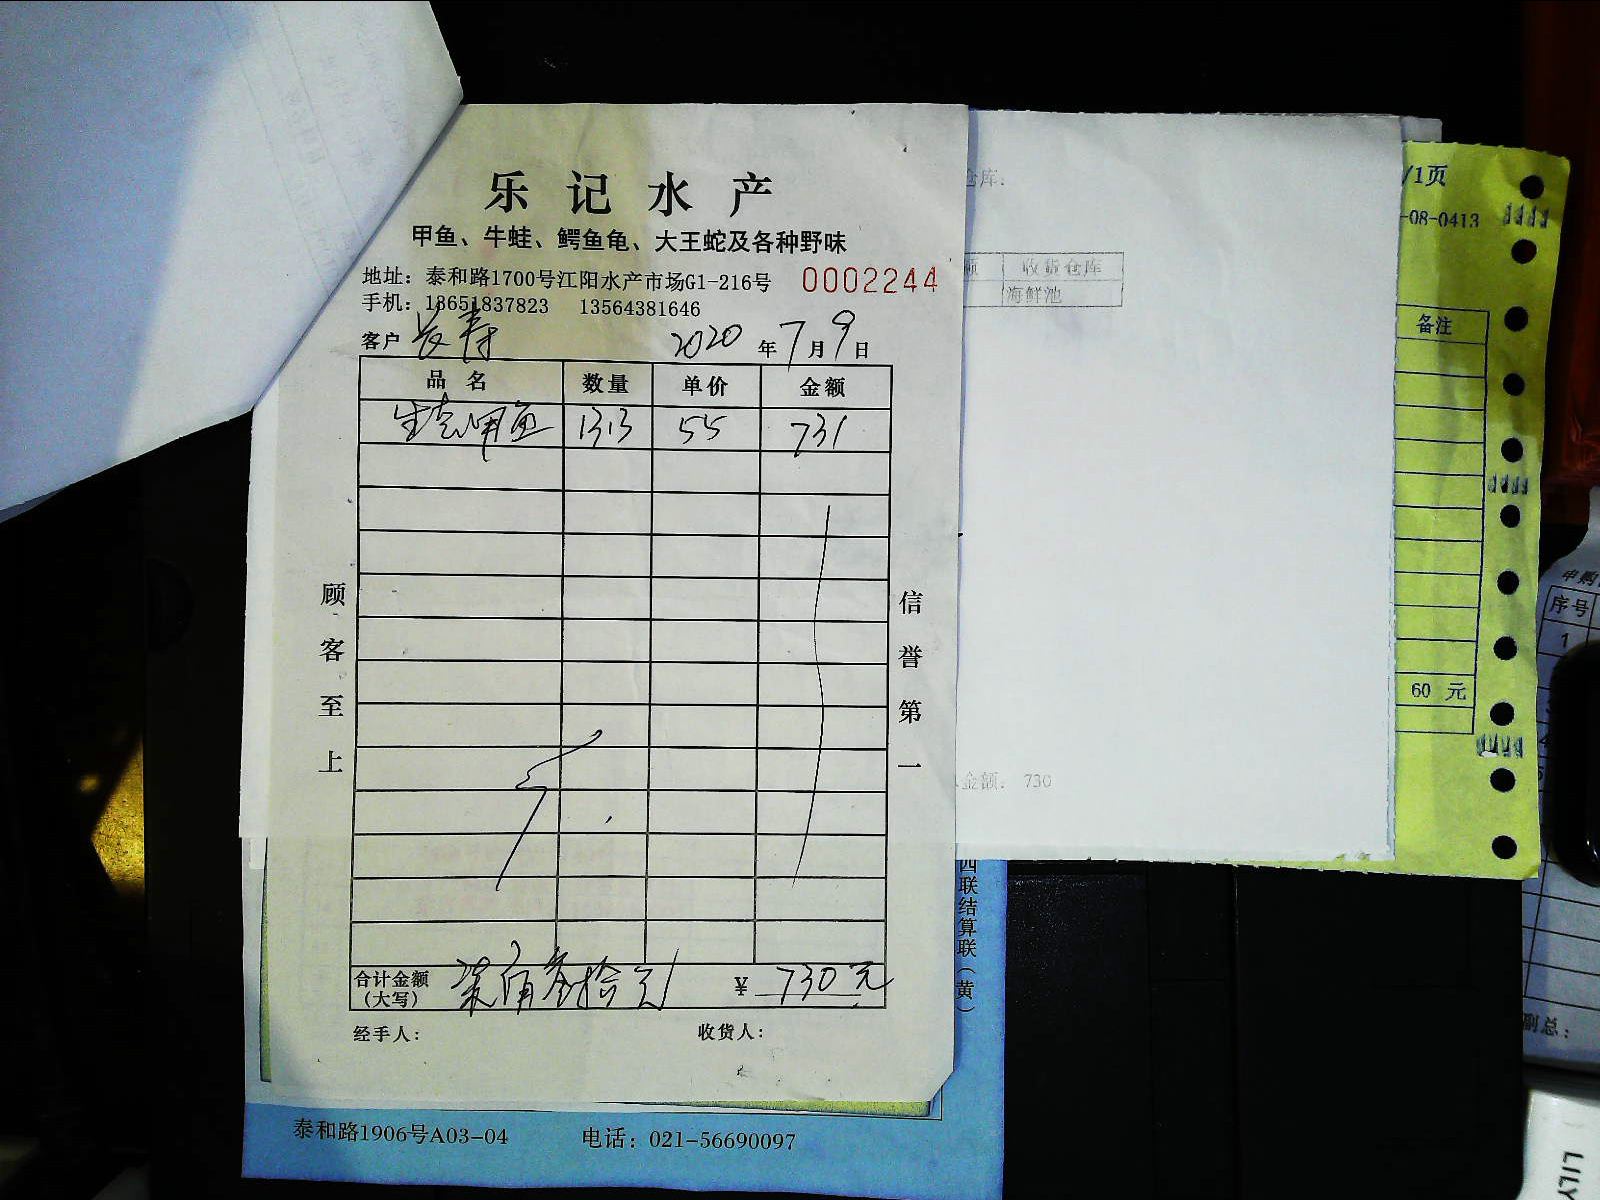 乐记水产
甲鱼、牛蛙、鳄鱼龟、大王蛇及各种野味
地址：泰和路1700号江阳水产市场G1-216号 0002244
手机：18651837823 13564381646
客户 长寿 2020年7月9日
品名 数量 单价 金额
生态甲鱼 13.3 55 731
顾客至上
信誉第一
合计金额（大写） 柒佰叁拾元 ¥ 730元
经手人： 收货人：
泰和路1906号A03-04 电话：021-56690097
四联结算联（黄）
仓库：
收货仓库
海鲜池
金额： 730
/1页
-08-0413
备注
60 元
申购
序号
1
副总：
LILY